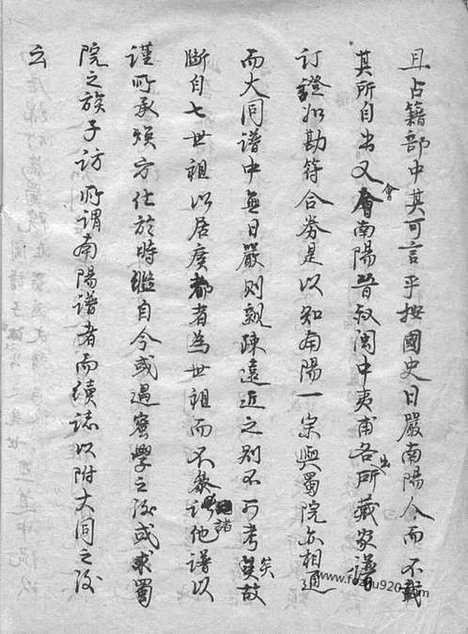 且占籍部中其可言乎按國史日嚴南陽人而不載
其所自出又會南陽晉叔閩中夷甫各出所藏家譜
訂證如勘符合券是以知南陽一宗與蜀院亦相通
而大同譜中無日嚴則親疎遠近之別不可考矣故
斷自七世祖以居廣都者為世祖而不參諸他譜以
謹所承煐方仕於時繼自今或過察學之後或求蜀
院之族子訪所謂南陽譜者而續誌以附大同之後
云